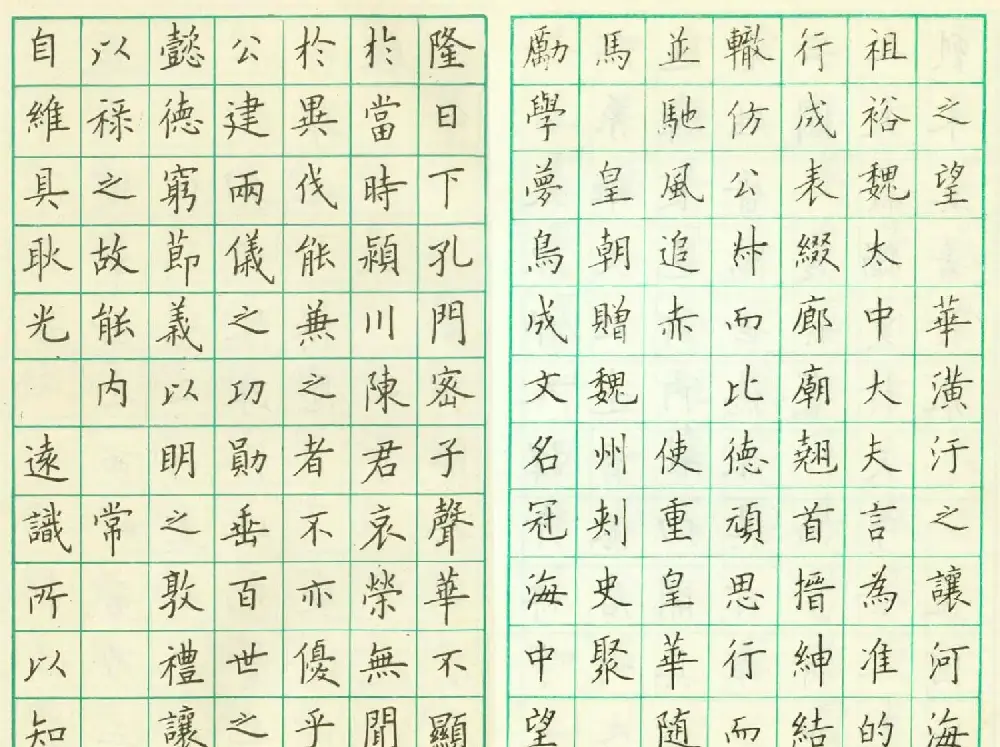 之望 華潢汙之讓河海
祖裕魏太中大夫言為准的
行成表綴廊廟翹首搢紳結
轍仿公叔而比德頑思行而
並馳風追赤 使重皇華随
馬 皇朝贈魏州刺史聚
勵學夢鳥成文名冠海中望
隆日下孔門宓子聲華不顯
於當時潁川陳君哀榮無聞
於異代能兼之者不亦優乎
公建兩儀之功勛垂百世之
懿德窮節義以明之敦禮讓
以禄之故能内 常
自維具耿光 遠識所以知